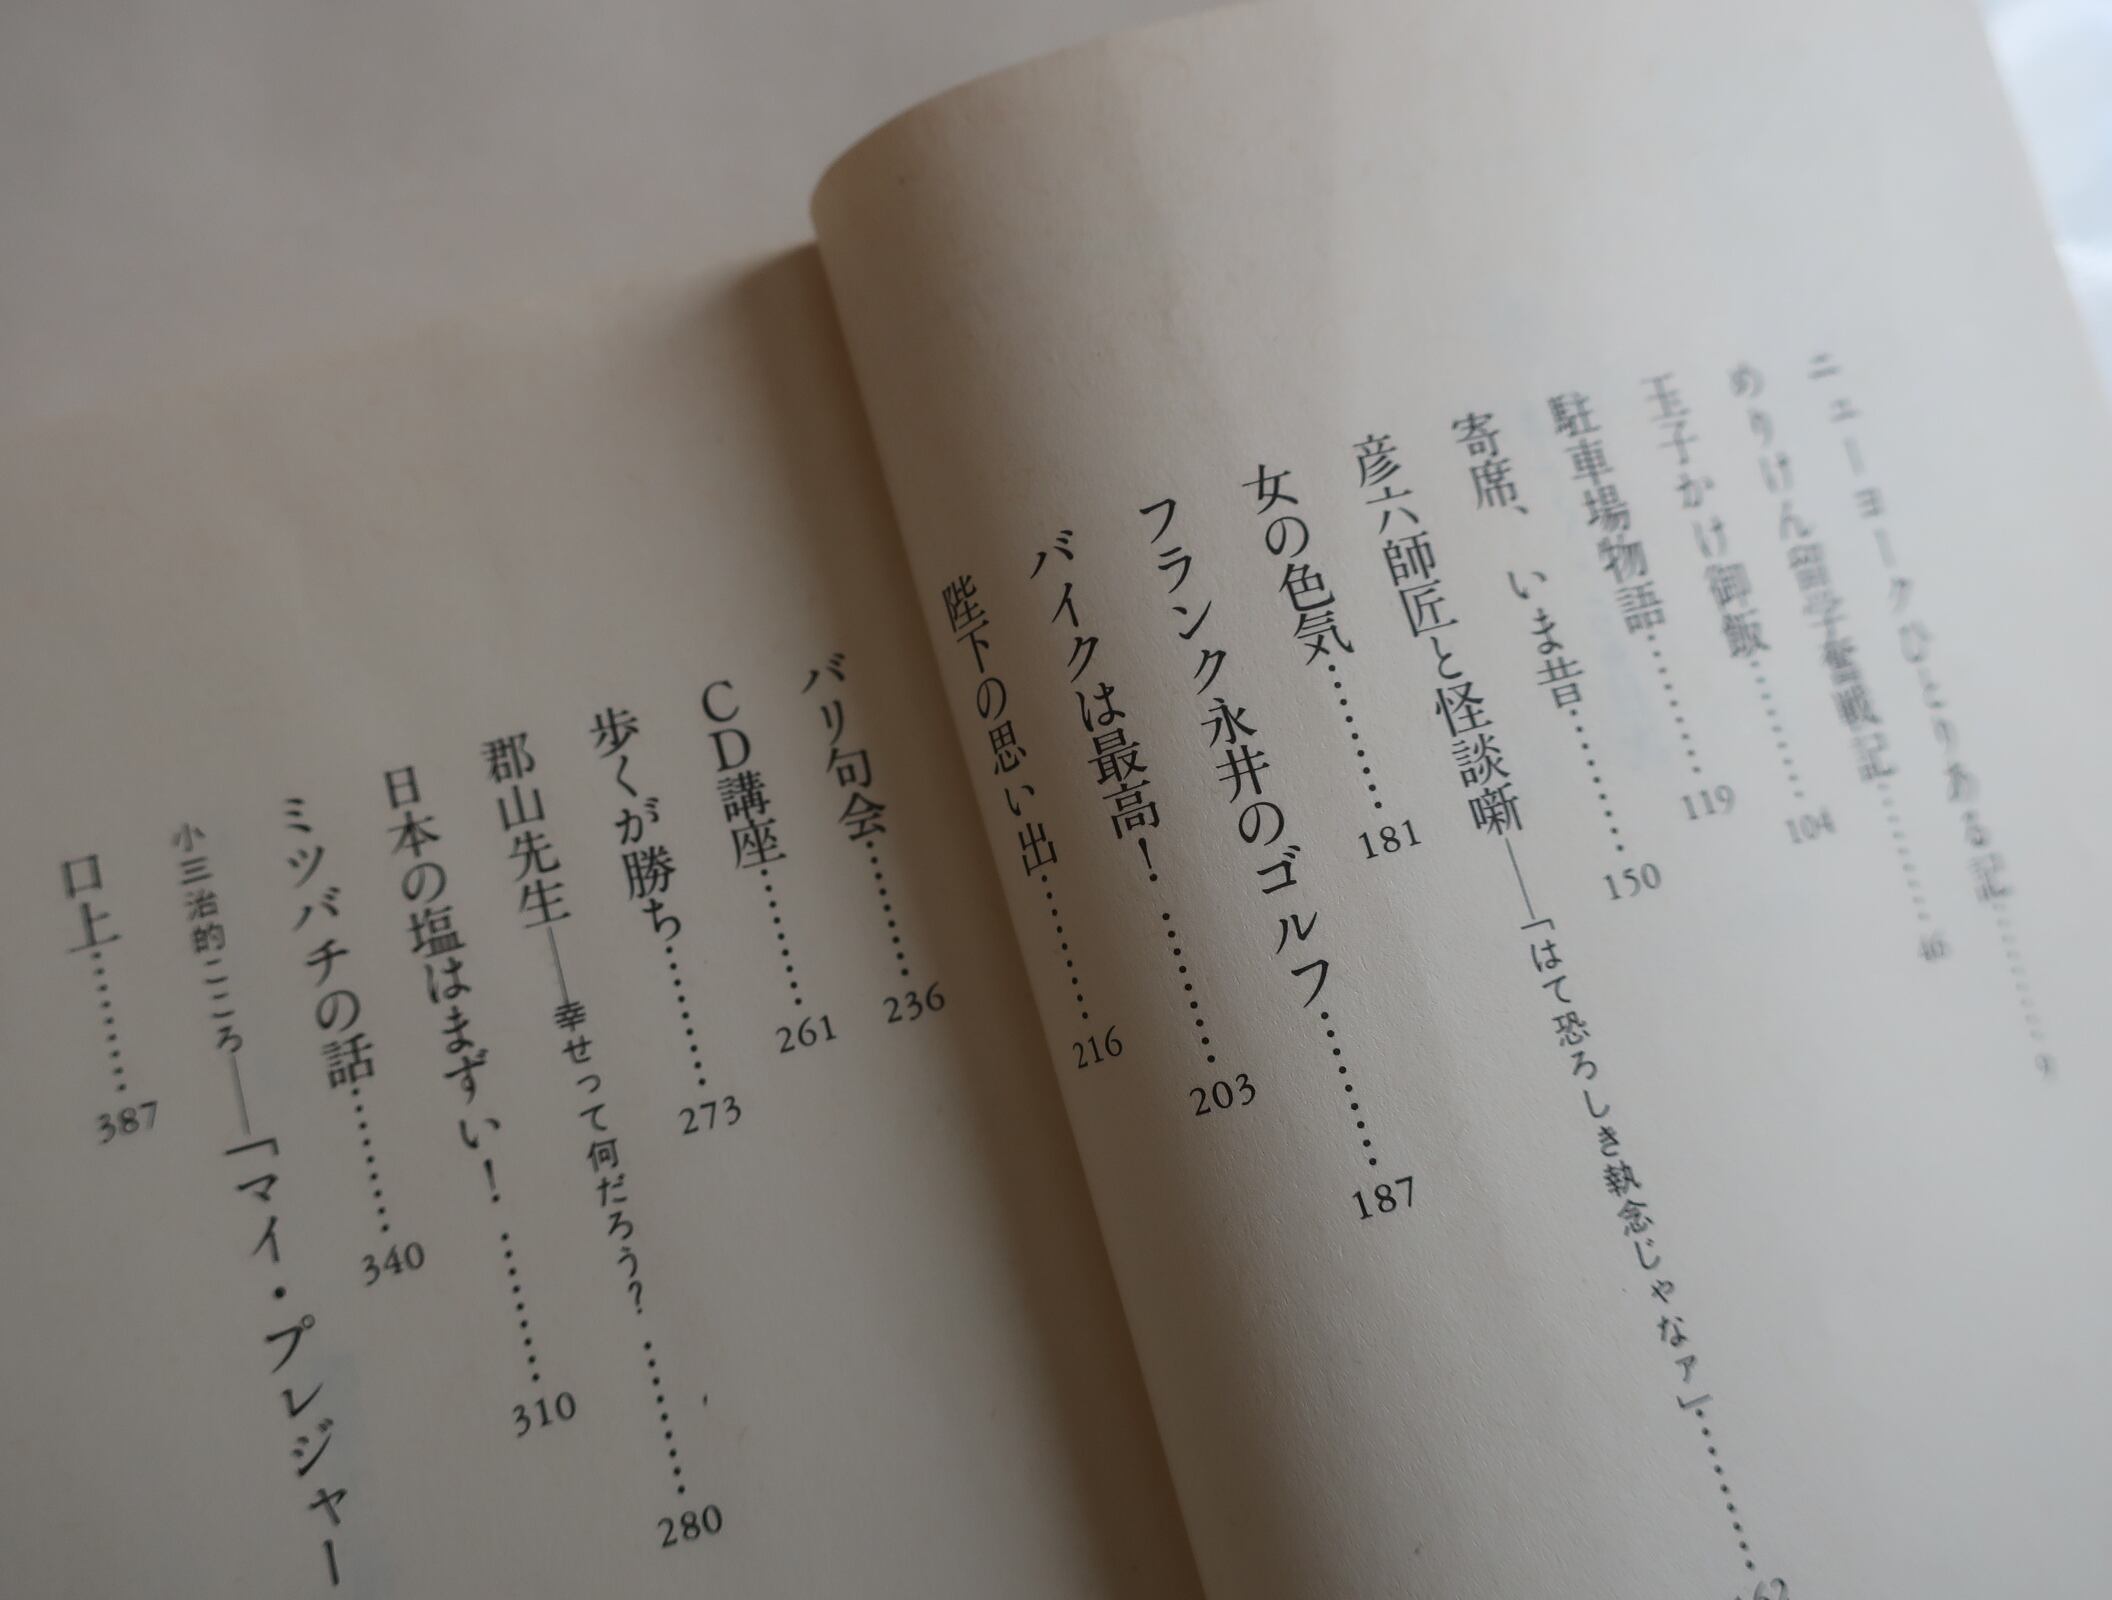 ニューヨークひとりある記………9
めりけん留学奮戦記………46
玉子かけ御飯………104
駐車場物語………119
寄席、いま昔………150
彦六師匠と怪談噺――「はて恐ろしき執念じゃなァ」………162
女の色気………181
フランク永井のゴルフ………187
バイクは最高！………203
陛下の思い出………216
バリ句会………236
CD講座………261
歩くが勝ち………273
郡山先生――幸せって何だろう？………280
日本の塩はまずい！………310
ミツバチの話………340
小三治的こころ――「マイ・プレジャー
口上………387